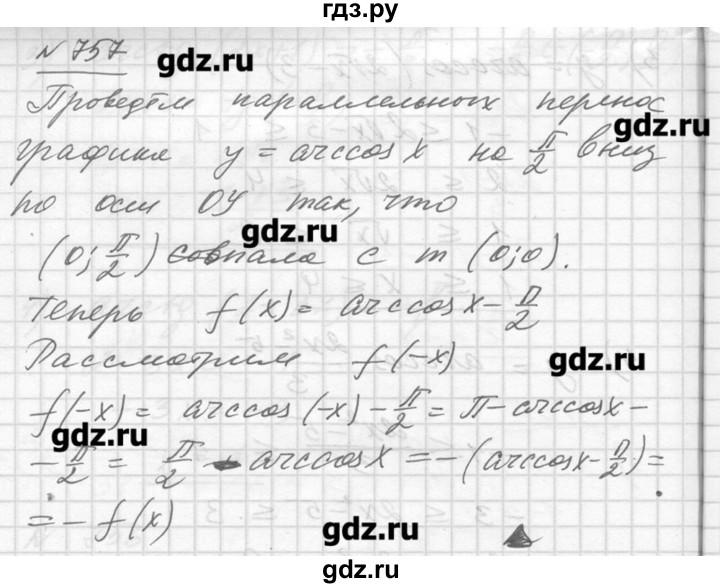 гдз.ру
№ 757
gdz.ru
Проведём параллельных перенос
gdz.ru
графика y = arccos x на π/2 вниз
по оси OY так, что
gdz.ru
(0; π/2) совпала с т (0; 0).
Теперь f(x) = arccos x - π/2
Рассмотрим f(-x)
gdz.ru
f(-x) = arccos(-x) - π/2 = π - arccos x -
gdz.ru
- π/2 = π/2 - arccos x = -(arccos x - π/2) =
= - f(x)
gdz.ru
гдз.ру